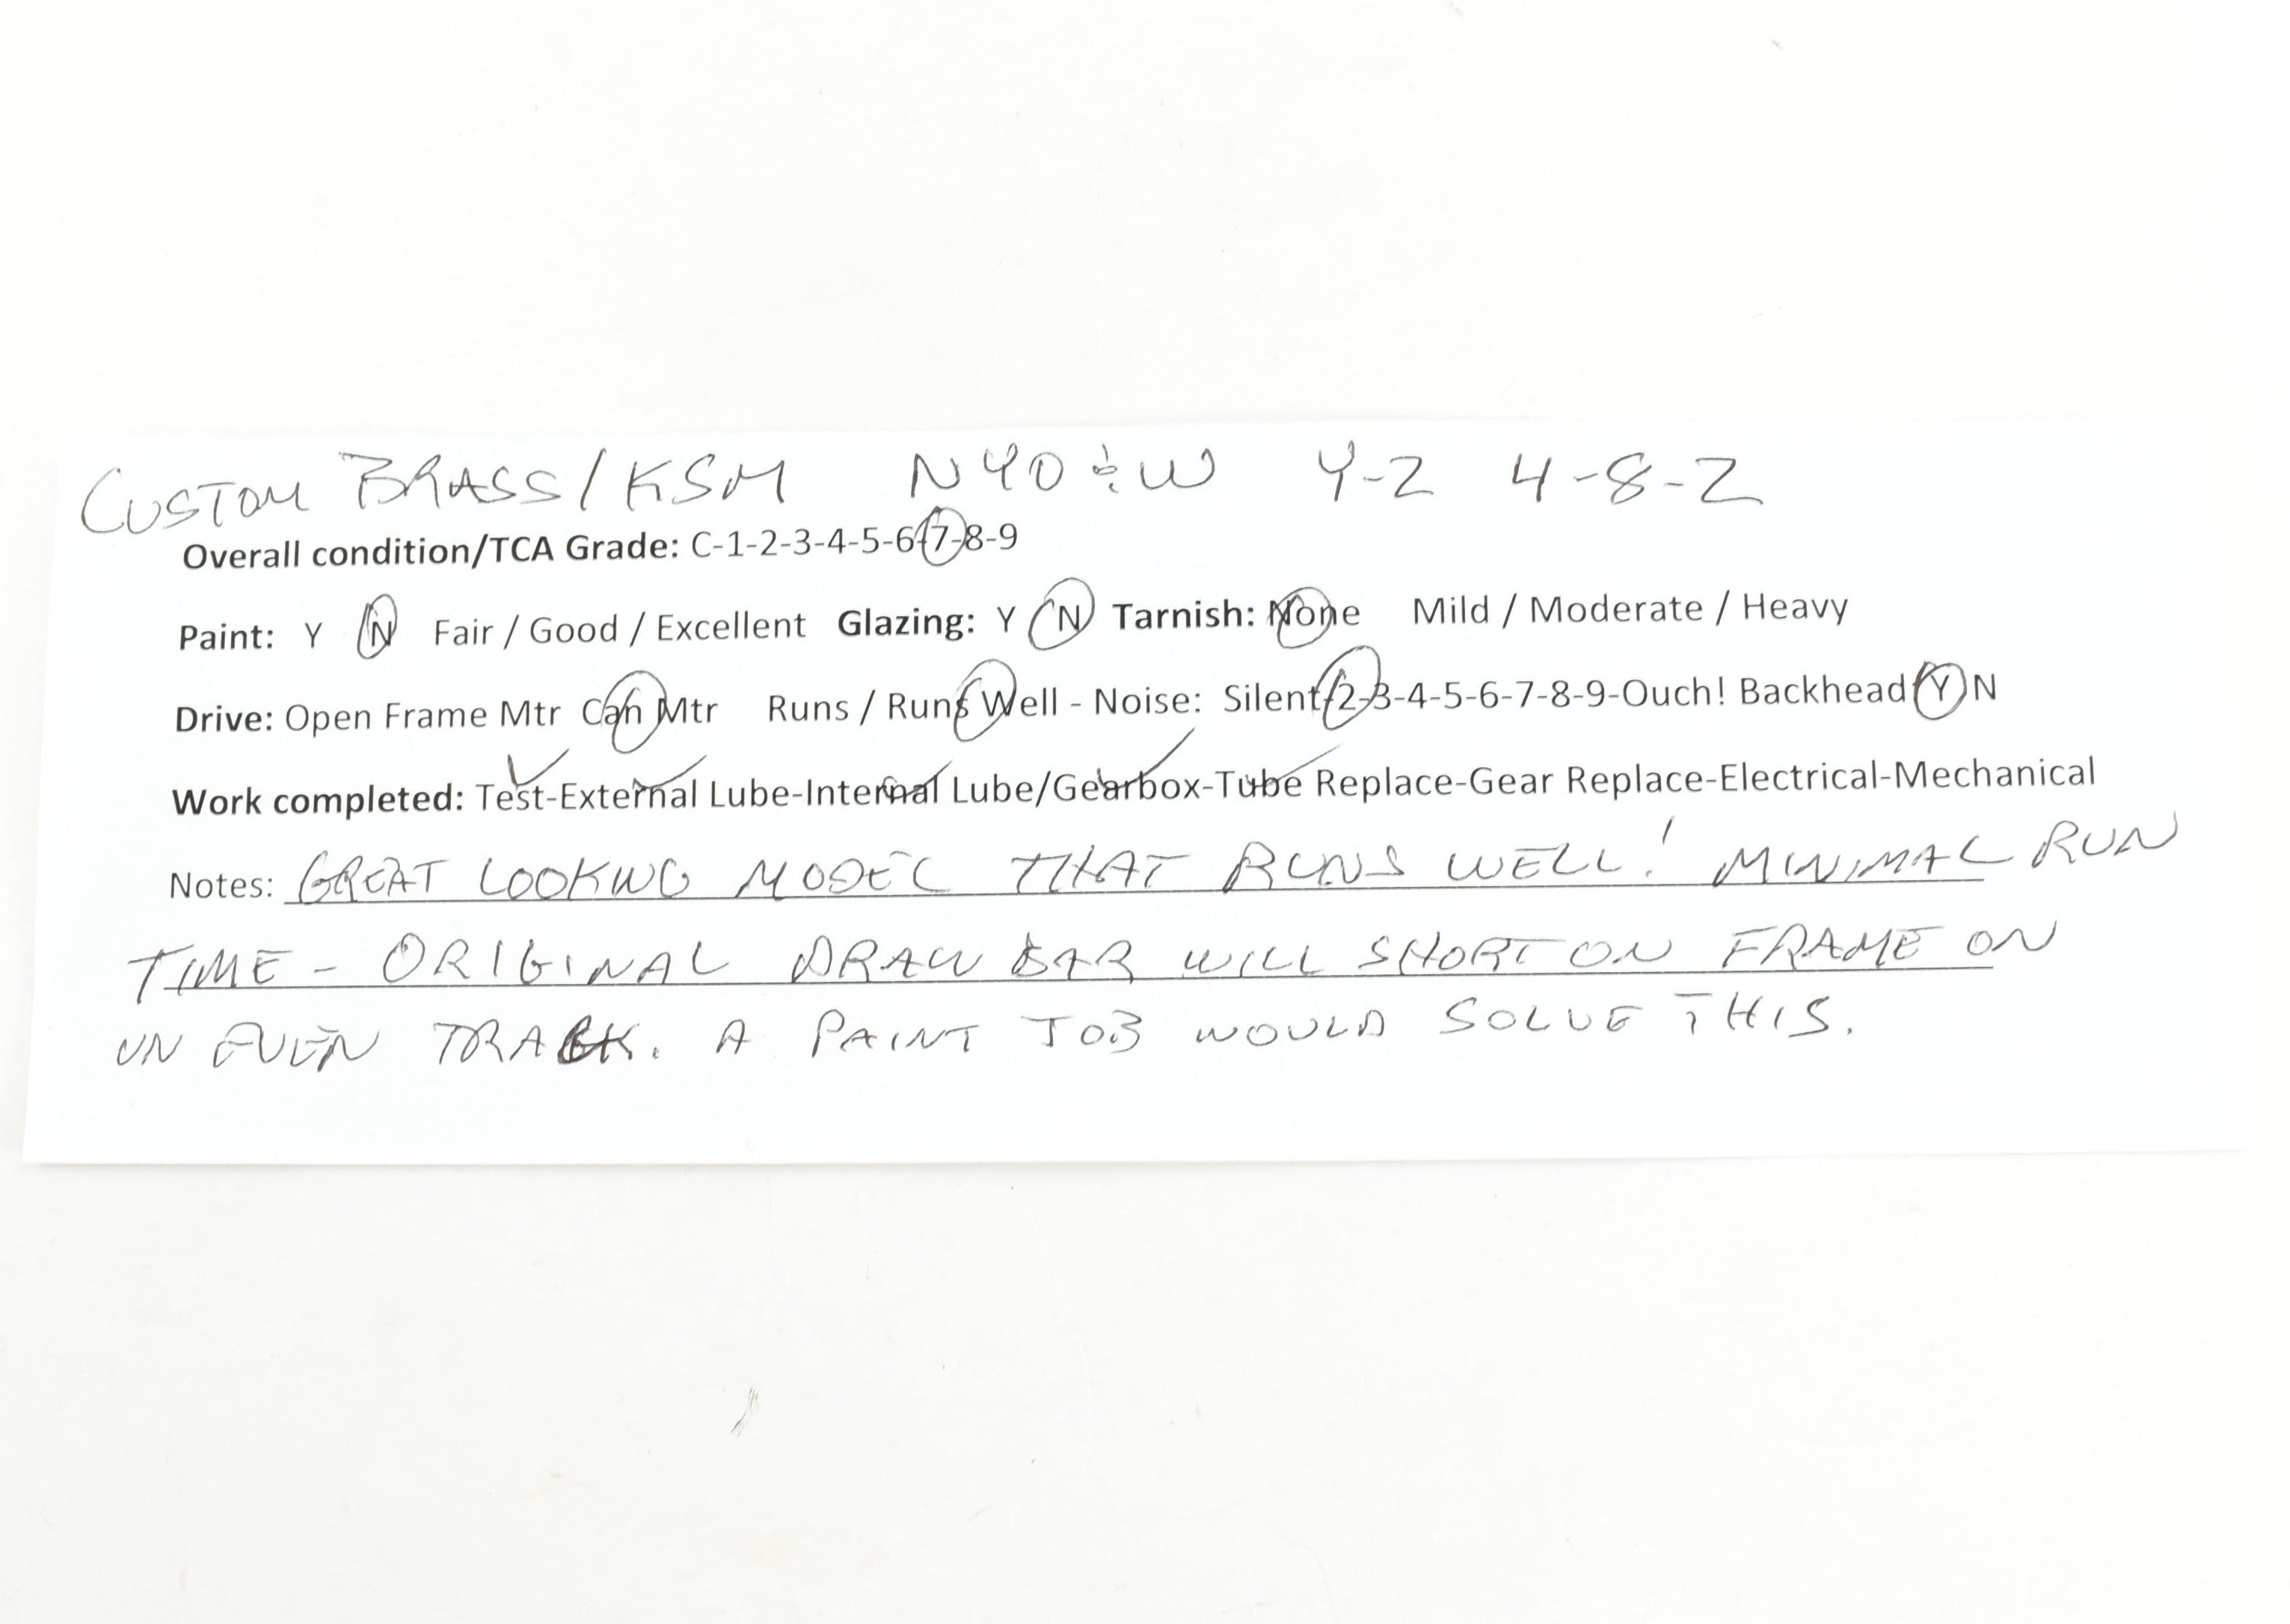 CUSTOM BRASS/KSM NYO&W Y-2 4-8-2
Overall condition/TCA Grade: C-1-2-3-4-5-6-7-8-9
Paint: Y N Fair / Good / Excellent Glazing: Y N Tarnish: None Mild / Moderate / Heavy
Drive: Open Frame Mtr Can Mtr Runs / Runs Well - Noise: Silent-2-3-4-5-6-7-8-9-Ouch! Backhead Y N
Work completed: Test-External Lube-Internal Lube/Gearbox-Tube Replace-Gear Replace-Electrical-Mechanical
Notes: GREAT LOOKING MODEL THAT RUNS WELL! MINIMAL RUN
TIME - ORIGINAL DRAW BAR WILL SHORT ON FRAME ON
UN EVEN TRACK. A PAINT JOB WOULD SOLVE THIS.